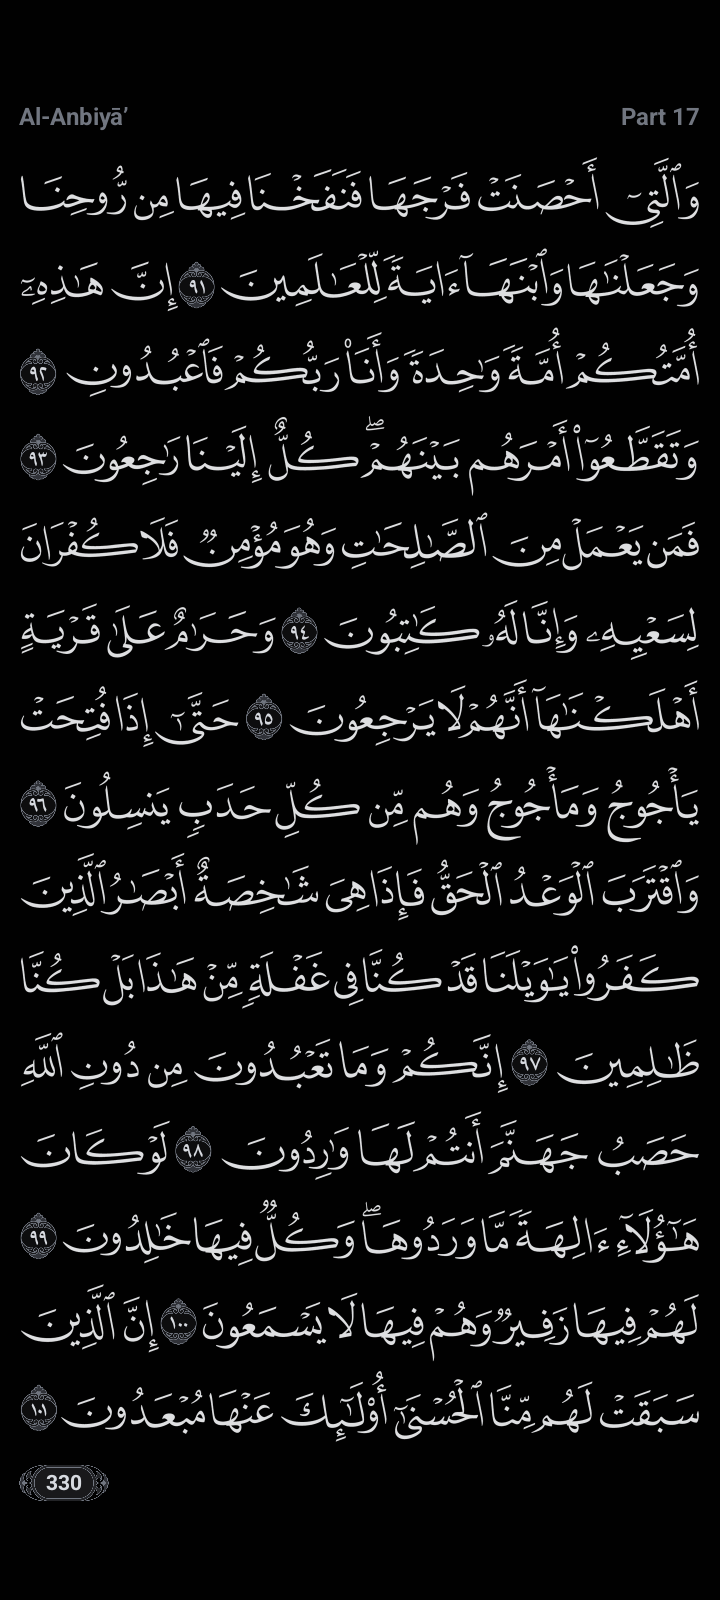 Al-Anbiyā’
Part 17
وَٱلَّتِىٓ أَحۡصَنَتۡ فَرۡجَهَا فَنَفَخۡنَا فِيهَا مِن رُّوحِنَا
وَجَعَلۡنَٰهَا وَٱبۡنَهَآ ءَايَةٗ لِّلۡعَٰلَمِينَ ٩١ إِنَّ هَٰذِهِۦٓ
أُمَّتُكُمۡ أُمَّةٗ وَٰحِدَةٗ وَأَنَا۠ رَبُّكُمۡ فَٱعۡبُدُونِ ٩٢
وَتَقَطَّعُوٓاْ أَمۡرَهُم بَيۡنَهُمۡۖ كُلٌّ إِلَيۡنَا رَٰجِعُونَ ٩٣
فَمَن يَعۡمَلۡ مِنَ ٱلصَّٰلِحَٰتِ وَهُوَ مُؤۡمِنٞ فَلَا كُفۡرَانَ
لِسَعۡيِهِۦ وَإِنَّا لَهُۥ كَٰتِبُونَ ٩٤ وَحَرَٰمٌ عَلَىٰ قَرۡيَةٍ
أَهۡلَكۡنَٰهَآ أَنَّهُمۡ لَا يَرۡجِعُونَ ٩٥ حَتَّىٰٓ إِذَا فُتِحَتۡ
يَأۡجُوجُ وَمَأۡجُوجُ وَهُم مِّن كُلِّ حَدَبٖ يَنسِلُونَ ٩٦
وَٱقۡتَرَبَ ٱلۡوَعۡدُ ٱلۡحَقُّ فَإِذَا هِىَ شَٰخِصَةٌ أَبۡصَٰرُ ٱلَّذِينَ
كَفَرُواْ يَٰوَيۡلَنَا قَدۡ كُنَّا فِى غَفۡلَةٖ مِّنۡ هَٰذَا بَلۡ كُنَّا
ظَٰلِمِينَ ٩٧ إِنَّكُمۡ وَمَا تَعۡبُدُونَ مِن دُونِ ٱللَّهِ
حَصَبُ جَهَنَّمَ أَنتُمۡ لَهَا وَٰرِدُونَ ٩٨ لَوۡ كَانَ
هَٰٓؤُلَآءِ ءَالِهَةٗ مَّا وَرَدُوهَاۖ وَكُلّٞ فِيهَا خَٰلِدُونَ ٩٩
لَهُمۡ فِيهَا زَفِيرٞ وَهُمۡ فِيهَا لَا يَسۡمَعُونَ ١٠٠ إِنَّ ٱلَّذِينَ
سَبَقَتۡ لَهُم مِّنَّا ٱلۡحُسۡنَىٰٓ أُوْلَٰٓئِكَ عَنۡهَا مُبۡعَدُونَ ١٠١
330